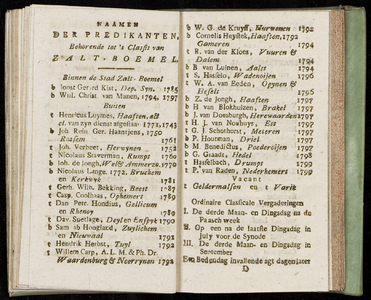 NAAMEN
DER PREDIKANTEN,
Behorende tot 's Classis van
ZALT-BOEMEL.
Binnen de Stad Zalt-Boemel
b Joost Gerard Kist, Dep. Syn. 1785
b Wil. Christ. van Manen, 1794, 1797
Buiten
t Henricus Luymes, Haaften, &c
et. van zyn dienst afgestaan 1771, 1743
b Joh Rein Ger. Hanstjens, 1750
1761
t Joh. Verbeet, Herwynen 1752
t Nicolaus Staverman, Rumpt 1760
b Joh. de Jongh, Wel & Ammerz. 1770
b Nicolaus Lange. 1772. Bruchem
en Kerkwyk 1781
t Gerh. Wilh. Bekking, Beest 1787
t Casp. Coolhaas, Ophemert 1789
t Dan Petr. Hondius, Gellicum
en Rhenoy 1789
t Dav. Snetlage, Deyl en Enspyk 1790
b Sam ab Hoogland, Zuylichem
en Nieuwaal 1792
t Hendrik Herbst, Tuyl 1792
t Willem Carp, A. L. M. & Ph. Dr.
Waardenburg & Neerrynen 1792
b W. G. de Kruyff, Hurwenen 1792
b Cornelis Heyftek, Haaften, 1792
Gameren 1794
t R. van der Kloes, Vuuren &
Dalem 1794
b B van Luinen, Aalst 1794
t S. Hasselo, Wadenoijen 1796
t W. A. van Eeden, Opynen &
Heselt 1796
b Z. de Jongh, Haaften 1797
b H van Blokhuizen, Brakel 1797
b J. van Donsburgh, Herewaarden 1797
t H. J. van Noothuys, Est 1797
t G. J. Schohorst, Meteren 1797
b P Houtman, Driel 1797
b M Benedictus, Poederoijen 1797
b G. Graads, Hedel 1798
t Hasselbach, Drumpt 1799
t P. van Raden, Nederhemert 1799
Vacant
t Geldermalsen en t Varik
Ordinaire Classicale Vergaderingen
I. De derde Maan- en Dingsdag na de
Paasch week
II. Op een na de laatste Dingsdag in
July voor de Synode
III. De derde Maan- en Dingsdag in
September
Een Bededag invallende agt dagen later
D